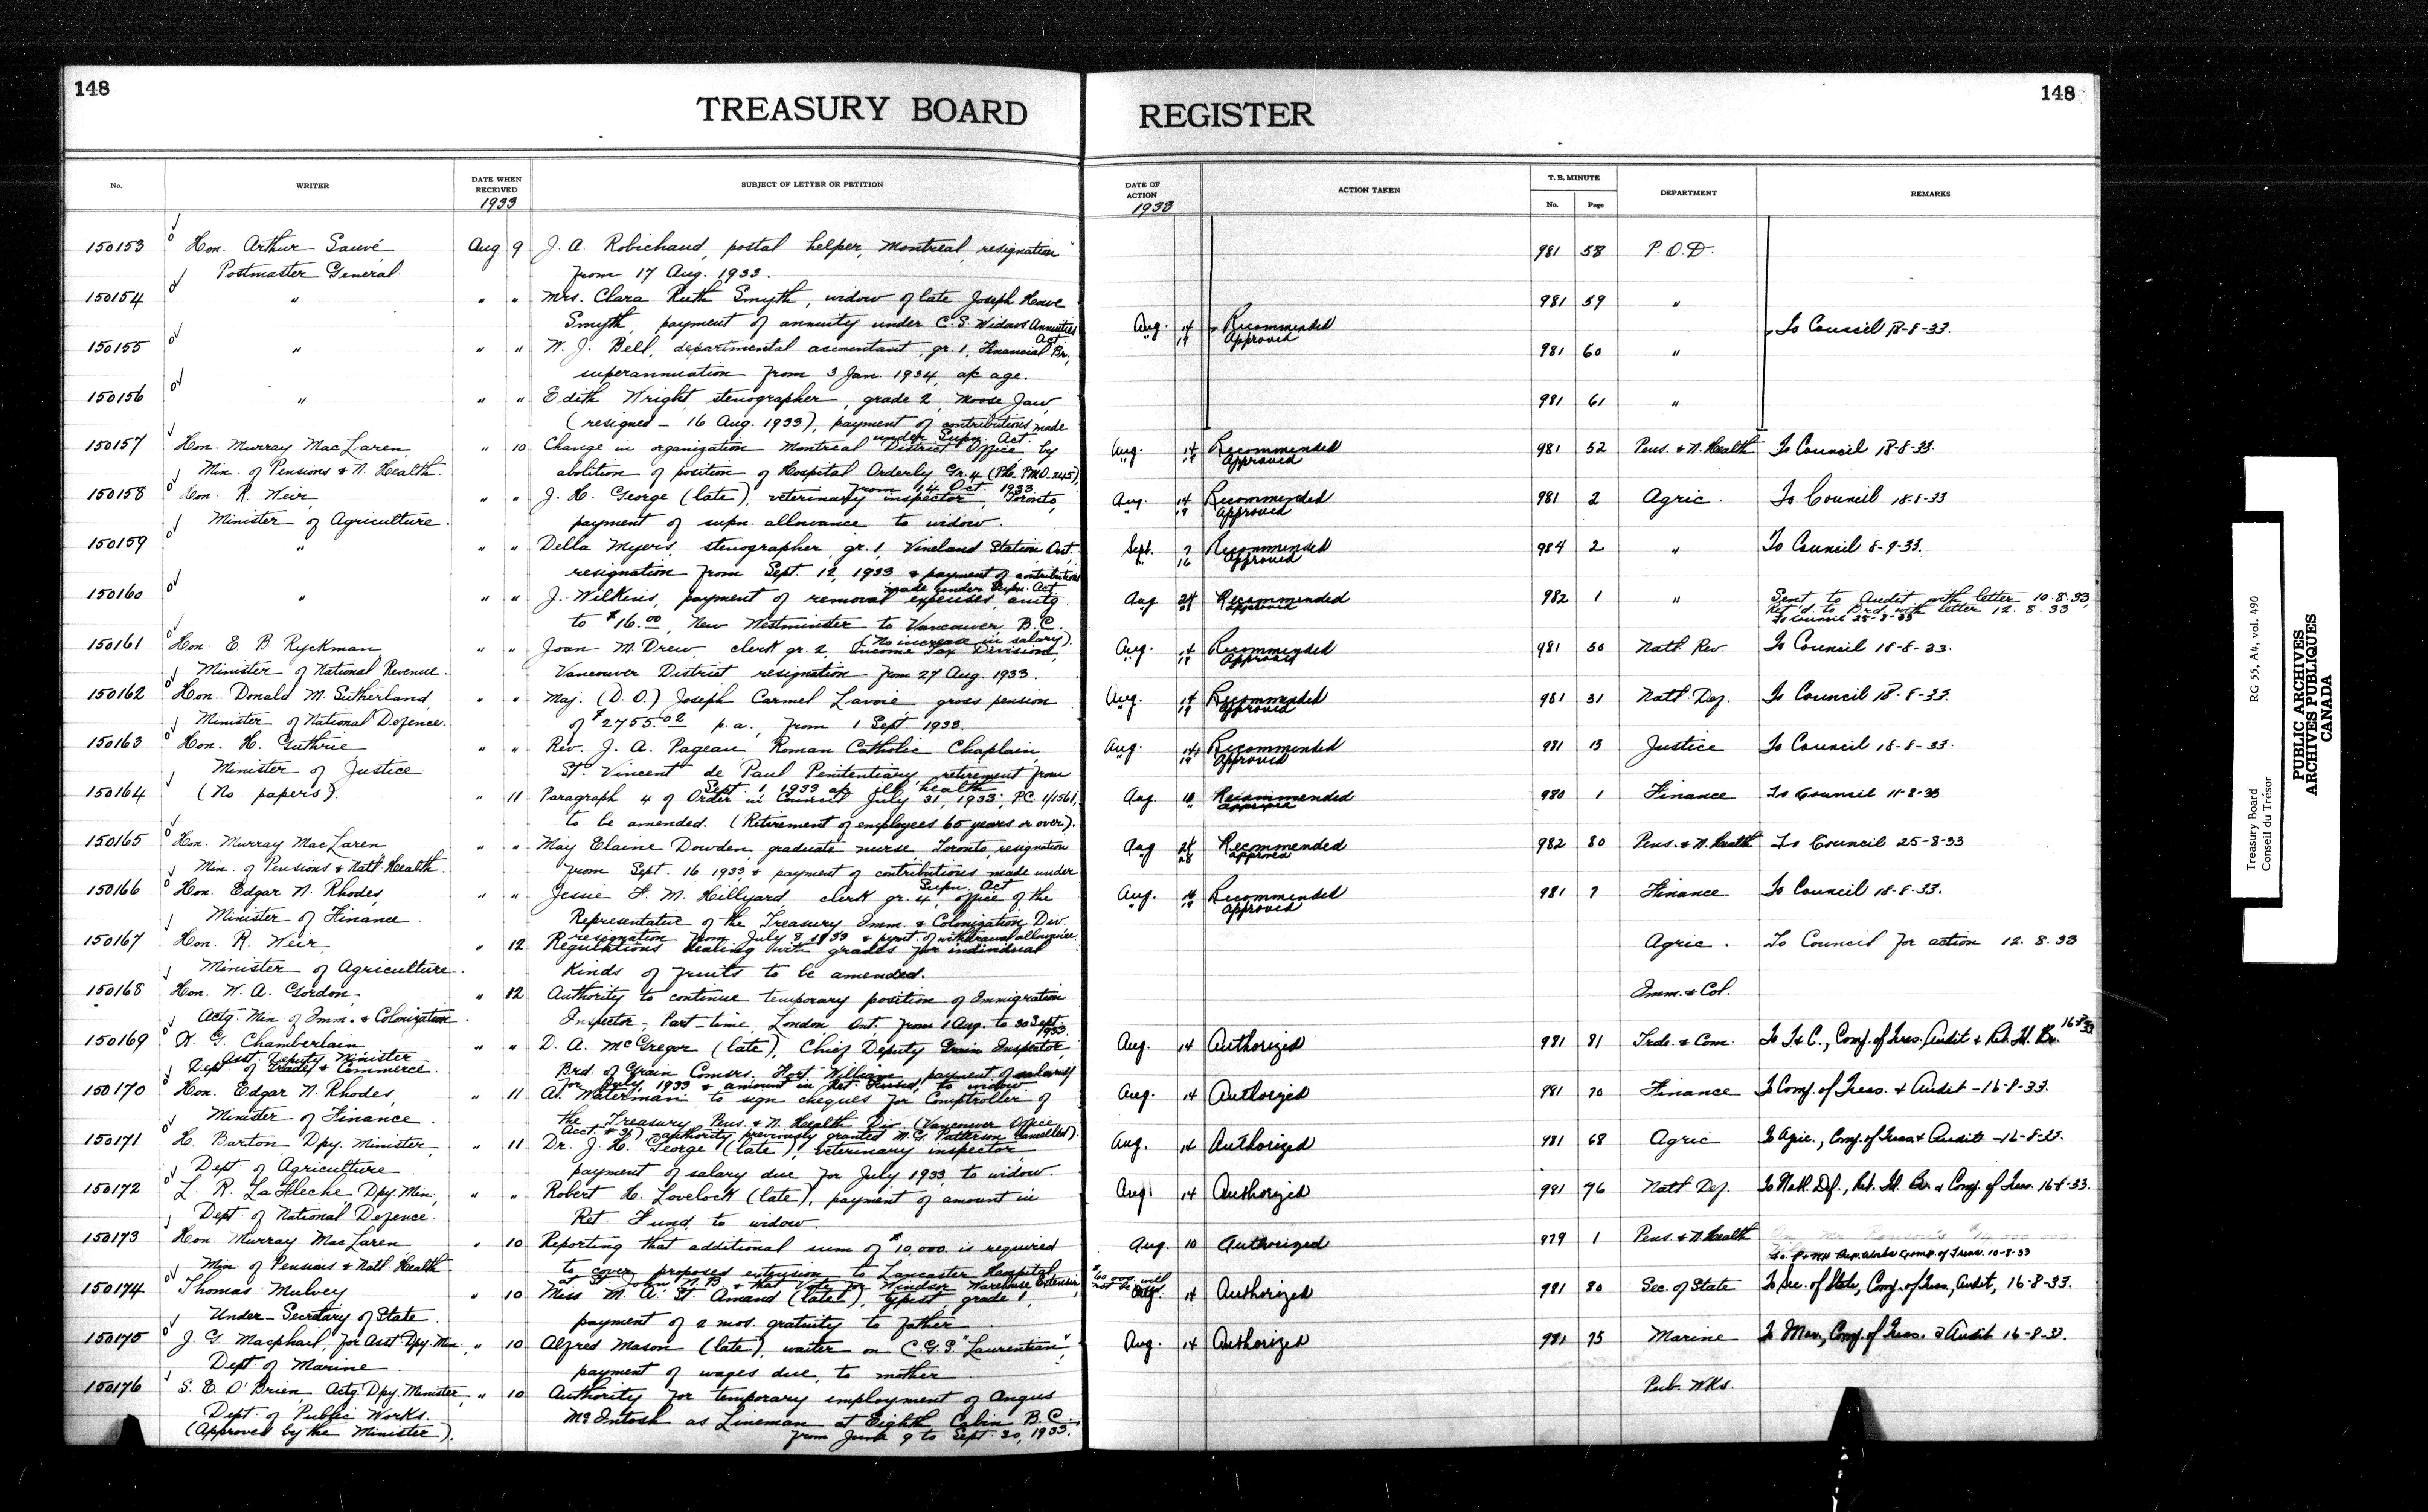 148
TREASURY BOARD REGISTER
148
No. WRITER DATE WHEN RECEIVED 1933 SUBJECT OF LETTER OR PETITION DATE OF ACTION 1933 ACTION TAKEN T. B. MINUTE No. Page DEPARTMENT REMARKS
150153 Hon. Arthur Sauvé, Aug. 9 J. A. Robichaud, postal helper, Montreal, resignation 981 58 P.O.D.
Postmaster General. from 17 Aug. 1933.
150154 " " " Mrs. Clara Ruth Smyth, widow of late Joseph Howe 981 59 "
Smyth, payment of annuity under C.S. Widows Annuities Act Aug. 14 Recommended To Council 18-8-33.
" 19 Approved
150155 " " " W. J. Bell, departmental accountant, gr. 1, Financial Br., 981 60 "
superannuation from 3 Jan. 1934, a/c age.
150156 " " " Edith Wright, stenographer, grade 2, Moose Jaw, 981 61 "
(resigned – 16 Aug. 1933), payment of contributions made under Supn. Act.
150157 Hon. Murray MacLaren, " 10 Change in organization Montreal District Office, by Aug. 14 Recommended 981 52 Pens. & N. Health To Council 18-8-33.
" 19 Approved
Min. of Pensions & N. Health. abolition of position of Hospital Orderly Gr. 4 (PH-PMO.245), from 14 Oct. 1933
150158 Hon. R. Weir, " " J. H. George (late), veterinary inspector, Toronto, Aug. 14 Recommended 981 2 Agric. To Council 18-8-33
" 19 Approved
Minister of Agriculture. payment of supn. allowance to widow.
150159 " " " Della Myers, stenographer, gr. 1, Vineland Station, Ont. Sept. 7 Recommended 984 2 " To Council 8-9-33.
" 16 Approved
resignation from Sept. 12, 1933 & payment of contributions made under Supn. Act
150160 " " " J. Wilkins, payment of removal expenses, amtg Aug 24 Recommended 982 1 " Sent to Audit with letter 10.8.33,
Approved Ret'd. to Brd. with letter 12.8.33
To Council 25-8-33
to $16.00, New Westminster to Vancouver B.C. (No increase in salary).
150161 Hon. E. B. Ryckman " " Joan M. Drew, clerk gr. 2, Income Tax Division, Aug. 14 Recommended 981 50 Natl. Rev. To Council 18-8-33.
" 19 Approved
Minister of National Revenue. Vancouver District resignation from 27 Aug. 1933.
150162 Hon. Donald M. Sutherland, " " Maj. (D.O.) Joseph Carmel Lavoie gross pension Aug. 14 Recommended 981 31 Natl. Def. To Council 18-8-33.
" 19 Approved
Minister of National Defence. of $2755.02 p.a., from 1 Sept. 1933.
150163 Hon. H. Guthrie " " Rev. J. A. Pageau, Roman Catholic Chaplain, Aug. 14 Recommended 981 13 Justice To Council 18-8-33.
" 19 Approved
Minister of Justice St. Vincent de Paul Penitentiary, retirement from Sept. 1, 1933 a/c ill health
150164 (No papers). " 11 Paragraph 4 of Order in Council July 31, 1933, P.C. 1/1561, Aug. 10 Recommended 980 1 Finance To Council 11-8-33
Approved
to be amended. (Retirement of employees 65 years or over).
150165 Hon. Murray MacLaren " " May Elaine Dowden, graduate nurse, Toronto, resignation Aug 24 Recommended 982 80 Pens. & N. Health To Council 25-8-33
Approved
Min. of Pensions & Natl. Health. from Sept. 16 1933, & payment of contributions made under Supn. Act
150166 Hon. Edgar N. Rhodes, " " Jessie F. M. Hillyard, clerk gr. 4, office of the Aug. 14 Recommended 981 7 Finance To Council 18-8-33.
" 19 Approved
Minister of Finance. Representative of the Treasury Imm. & Colonization Div. resignation from July 8, 1933 & paymt. of withdrawal allowance
150167 Hon. R. Weir, " 12 Regulations dealing with grades for individual Agric. To Council for action 12.8.33
Minister of Agriculture. kinds of fruits to be amended.
150168 Hon. W. A. Gordon, " 12 Authority to continue temporary position of Immigration Imm. & Col.
Actg. Min. of Imm. & Colonization. Inspector – Part-time, London, Ont. from 1 Aug. to 30 Sept. 1933.
150169 W. G. Chamberlain " " D. A. McGregor (late), Chief Deputy Grain Inspector, Aug. 14 Authorized 981 81 Trde. & Com. To T&C., Comp. of Treas. Audit & Ret. Fd. Br. 16-8-33
Asst. Deputy Minister
Dept. of Trade & Commerce. Brd. of Grain Comsrs. Fort William, payment of salary for July, 1933 & amount in Ret. Fund, to widow.
150170 Hon. Edgar N. Rhodes, " 11 A. Waterman to sign cheques for Comptroller of Aug. 14 Authorized 981 70 Finance To Comp. of Treas. & Audit – 16-8-33.
Minister of Finance. the Treasury Pens. & N. Health Div. (Vancouver Office Acct. # 31) authority previously granted M. G. Patterson cancelled).
150171 H. Barton Dpy. Minister, " 11 Dr. J. H. George (late), veterinary inspector, Aug. 14 Authorized 981 68 Agric To Agric., Comp. of Treas. & Audit – 16-8-33.
Dept. of Agriculture payment of salary due for July 1933, to widow.
150172 L. R. LaFleche, Dpy. Min., " " Robert H. Lovelock (late), payment of amount in Aug. 14 Authorized 981 76 Natl. Def. To Natl. Def., Ret. Fd. Br. & Comp. of Treas. 16-8-33.
Dept. of National Defence. Ret. Fund, to widow.
150173 Hon. Murray MacLaren " 10 Reporting that additional sum of $10,000 is required Aug. 10 Authorized 979 1 Pens. & N. Health
Min. of Pensions & Natl. Health to cover proposed extension to Lancaster Hospital at St. John N.B. & that Vote for Windsor Warehouse Extension, $60,000 will not be To P & NH Pub. Works Comp. of Treas. 10-8-33
150174 Thomas Mulvey " 10 Miss M. A. St. Amand (late), typist, grade 1, Aug. 14 Authorized 981 80 Sec. of State To Sec. of State, Comp. of Treas., Audit, 16-8-33.
Under-Secretary of State. payment of 2 mos. gratuity to father.
150175 J. G. Macphail, for Asst. Dpy. Min., " 10 Alfred Mason (late), waiter on C.G.S. "Laurentian", Aug. 14 Authorized 981 75 Marine To Mar., Comp. of Treas. & Audit 16-8-33.
Dept. of Marine payment of wages due, to mother.
150176 S. E. O'Brien Actg. Dpy. Minister, " 10 Authority for temporary employment of Angus Pub. Wks.
Dept. of Public Works. McIntosh as Lineman at Eighth Cabin B.C.,
(Approved by the Minister). from June 9 to Sept. 30, 1933.
Treasury Board RG 55, A4, vol. 490
Conseil du Trésor
PUBLIC ARCHIVES
ARCHIVES PUBLIQUES
CANADA